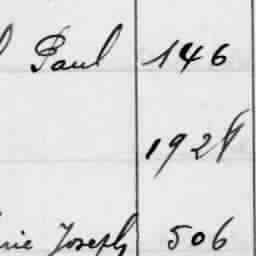 Paul 146
1928
Joseph 506